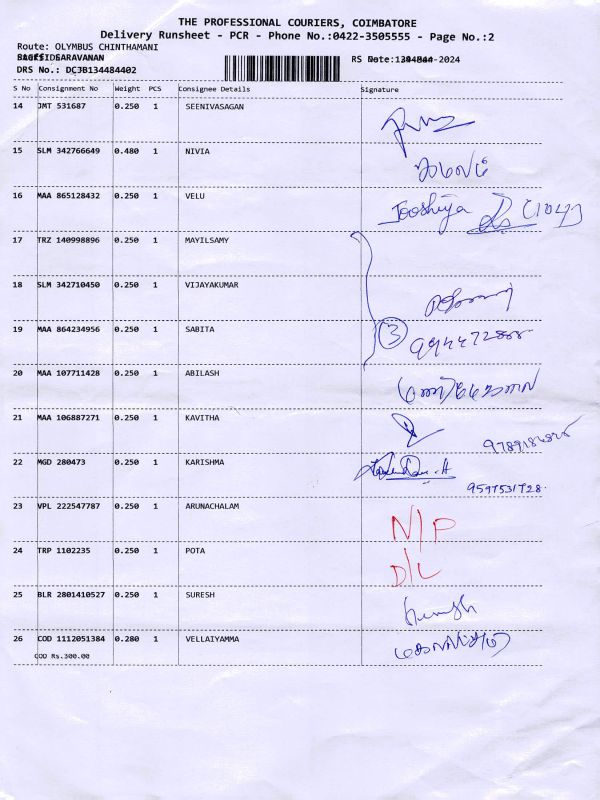 THE PROFESSIONAL COURIERS, COIMBATORE
Delivery Runsheet - PCR - Phone No.:0422-3505555 - Page No.:2
Route: OLYMBUS CHINTHAMANI
SARAVANAN
RS Note: -2024
DRS No.: DCJB134484402
S No Consignment No Weight PCS Consignee Details Signature
14 JMT 531687 0.250 1 SEENIVASAGAN
15 SLM 342766649 0.480 1 NIVIA
16 MAA 865128432 0.250 1 VELU Jooshiya
17 TRZ 140998896 0.250 1 MAYILSAMY
18 SLM 342710450 0.250 1 VIJAYAKUMAR
19 MAA 864234956 0.250 1 SABITA 3
20 MAA 107711428 0.250 1 ABILASH
21 MAA 106887271 0.250 1 KAVITHA
22 MGD 280473 0.250 1 KARISHMA
9597531728
23 VPL 222547787 0.250 1 ARUNACHALAM N/P
24 TRP 1102235 0.250 1 POTA D/L
25 BLR 2801410527 0.250 1 SURESH
26 COD 1112051384 0.280 1 VELLAIYAMMA
COD Rs.300.00